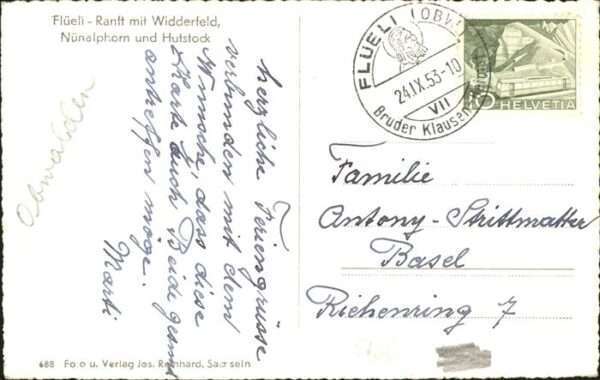 Flüeli - Ranft mit Widderfeld,
Nünalphorn und Hutstock
Obwalden
Herzliche Feriengrüsse
verbunden mit dem
Wunsche, dass diese
Karte auch Beide gesund
antreffen möge.
Marti
FLÜELI (OBW.)
24.IX.53-10
VII
Bruder Klausen
10
HELVETIA
Familie
Antony-Strittmatter
Basel
Riehenring 7
688 Foto u. Verlag Jos. Reinhard, Sachseln